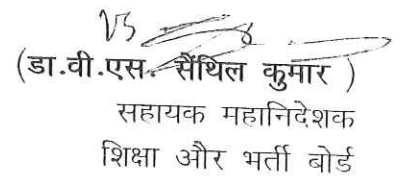 (डा.वी.एस. सैंथिल कुमार )
सहायक महानिदेशक
शिक्षा और भर्ती बोर्ड